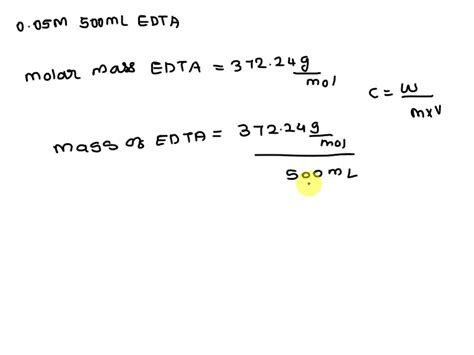 0.05M 500mL EDTA
molar mass EDTA = 372.24 g/mol
C = w/m×V
mass of EDTA = 372.24 g/mol
500 mL